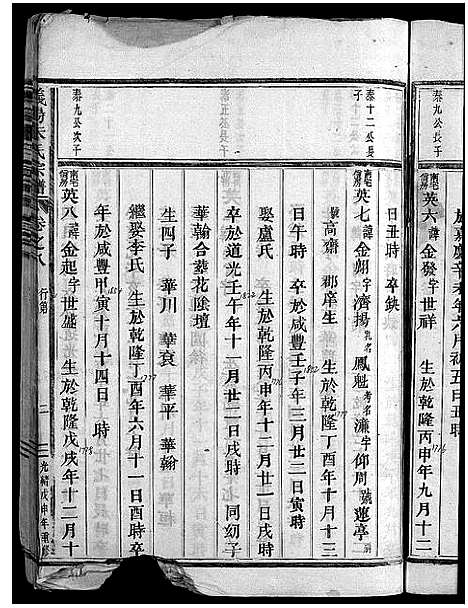 泰九公長子
英六諱金發字世祥 生於乾隆丙申年九月十二
1776
於嘉慶辛未年六月初五日丑時
日丑時 卒缺
泰十二公長子
英七諱金煥字濟揚乳名鳳魁考名濂字仰周號蓮亭
高齋 郡庠生 生於乾隆丁酉年十月十三
1777
日午時 卒於咸豐壬子年三月廿二日寅時
1852
娶盧氏 生於乾隆丙申年十二月初一日戌時
1776
卒於道光壬午年十一月廿二日戌時 同幼子
1822
華翰合葬花陰壇
生四子 華川 華袞 華平 華翰
繼娶李氏 生於乾隆丁酉年六月十一日酉時卒
1777
年於咸豐甲寅十月十四日 時
1854
泰九公次子
英八諱金起字世盛 生於乾隆戊戌年十二月十
1778
義陽朱氏宗譜 卷之八 行第 三 光緒戊申年重修